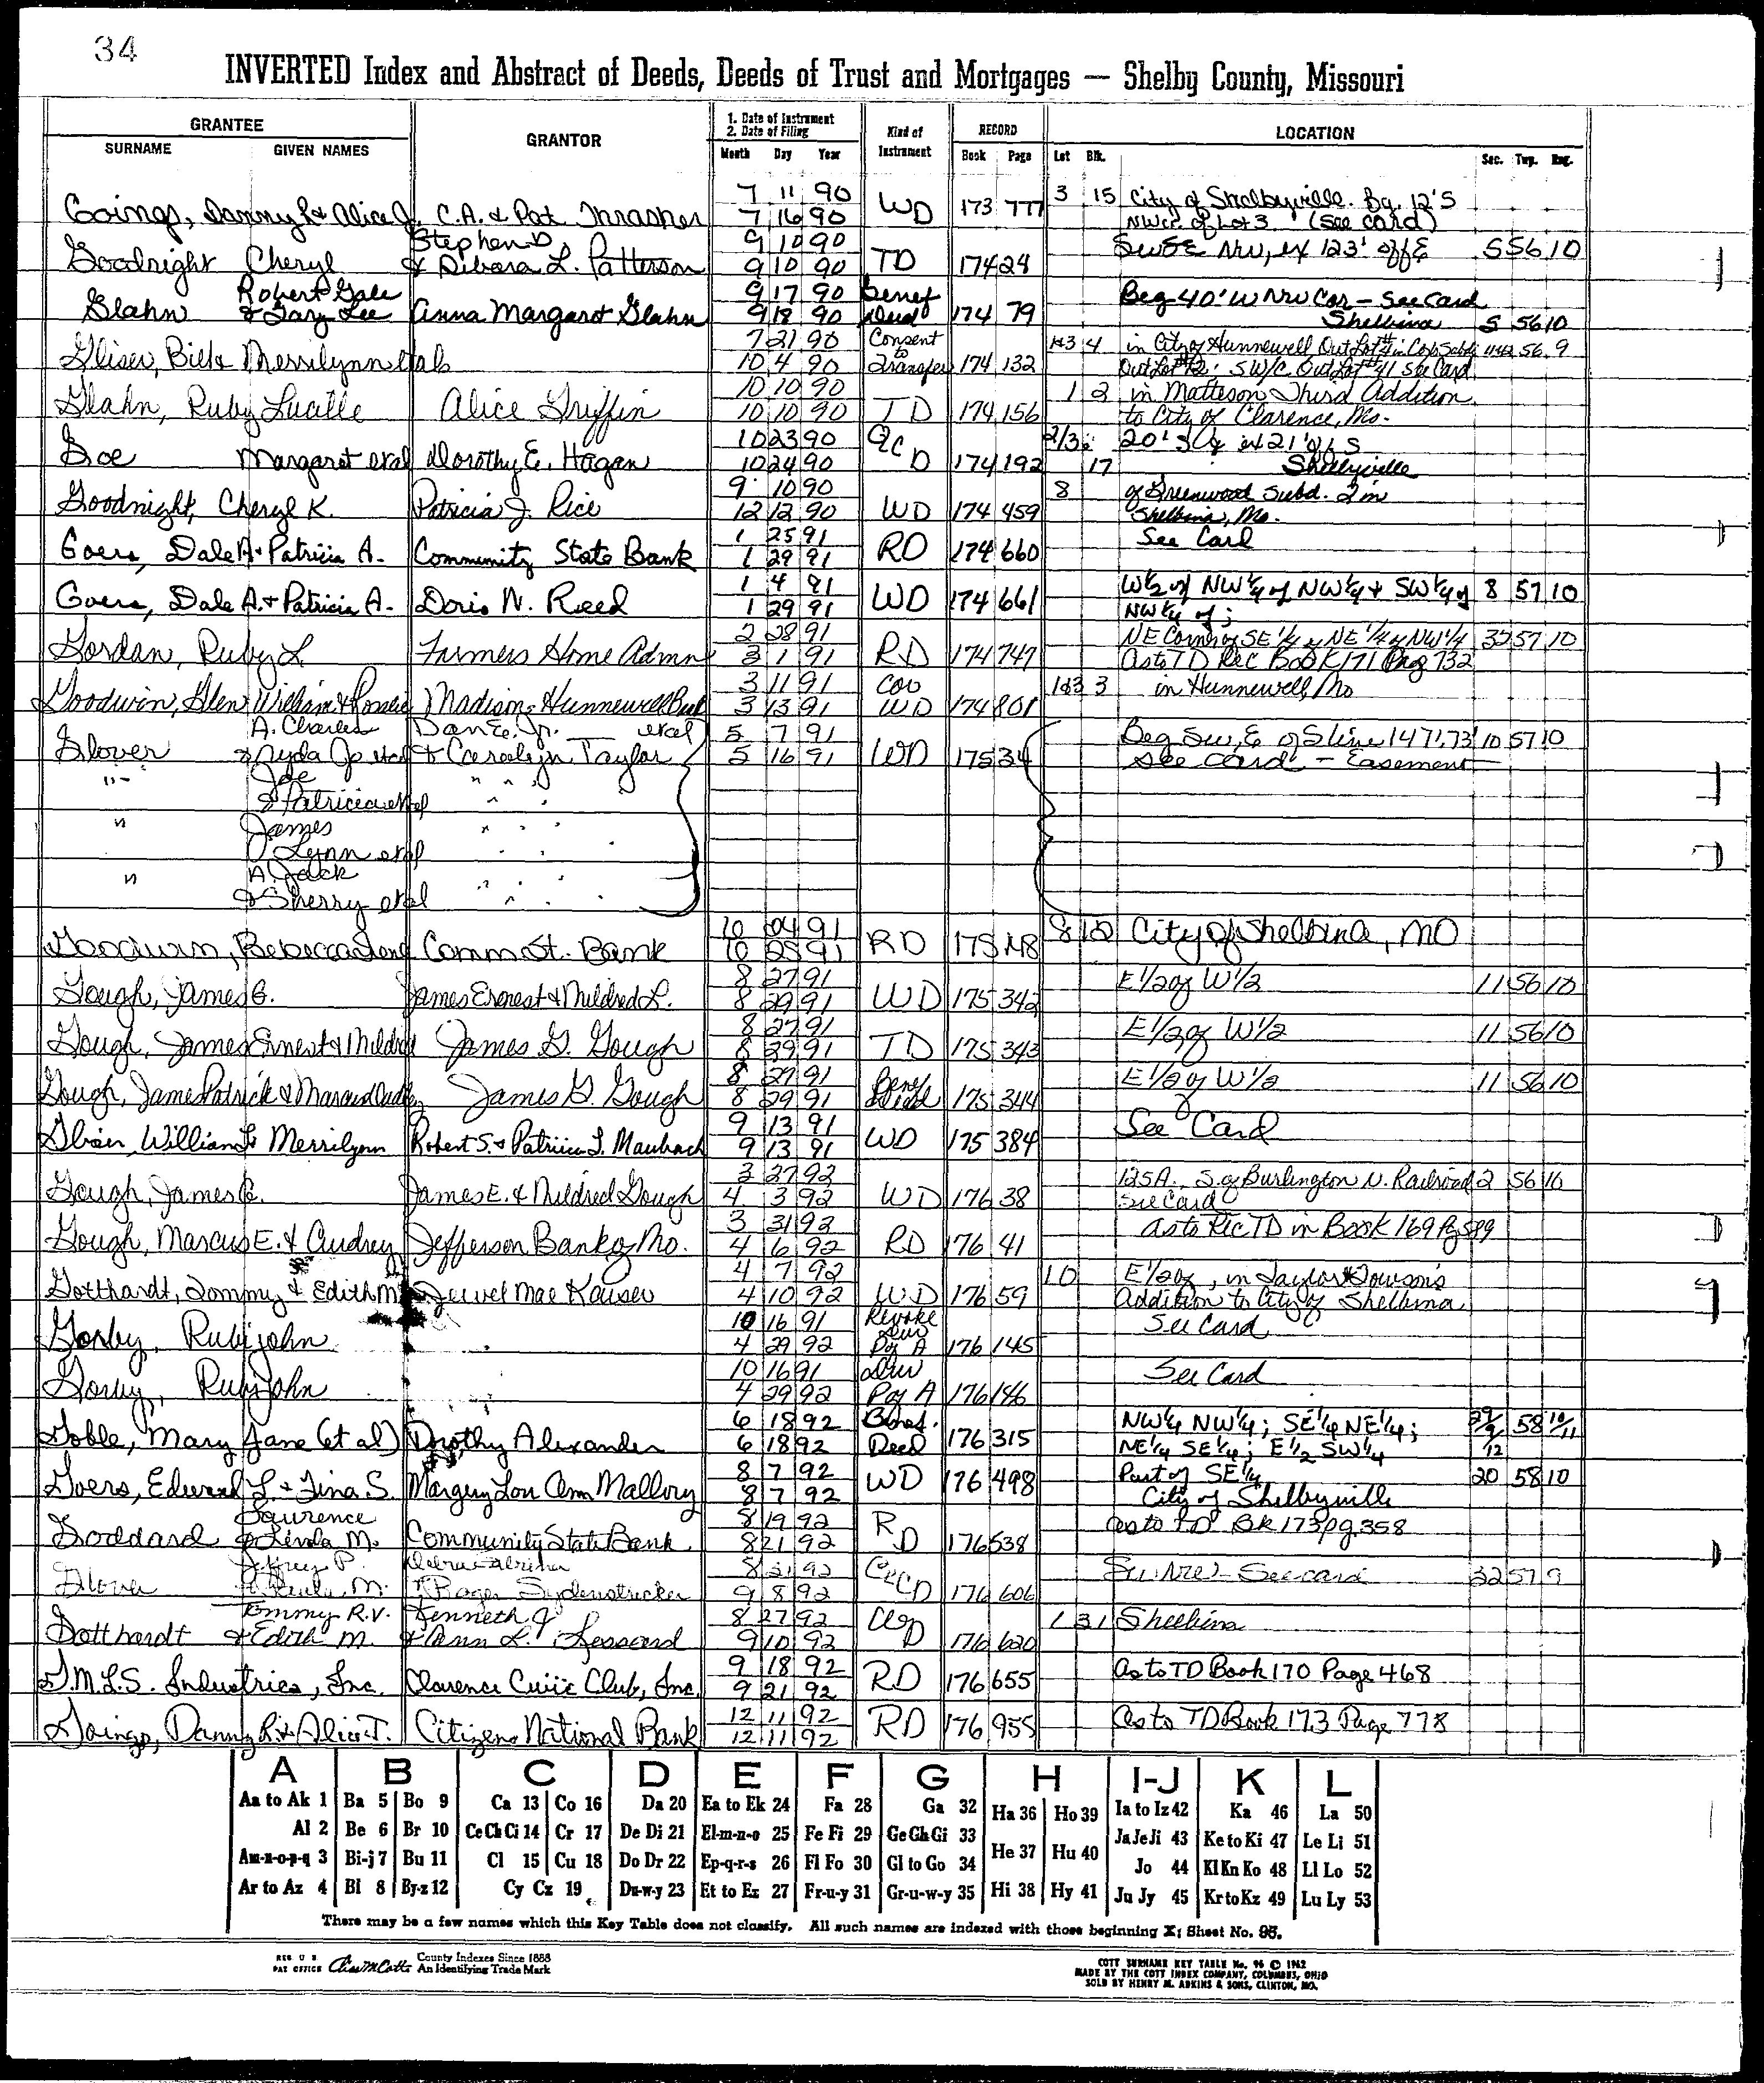 34
INVERTED Index and Abstract of Deeds, Deeds of Trust and Mortgages — Shelby County, Missouri
GRANTEE
SURNAME GIVEN NAMES
GRANTOR
1. Date of Instrument
2. Date of Filing
Month Day Year
Kind of Instrument
RECORD
Book Page
LOCATION
Lot Blk. Sec. Twp. Rng.
7 11 90 3 15 City of Shelbyville. Bg. 12'S
Goings, Danny R & Alice J. C.A. & Pat Thrasher 7 16 90 WD 173 777 NWcr. of Lot 3 (See card)
Stephen D. 9 10 90 SW SE NW, ex 123' off E 5 56 10
Goodnight Cheryl & Debora L. Patterson 9 10 90 TD 174 24
Robert Gale 9 17 90 Benef Beg 40' W NW Cor - See Card
Glahn & Gary Lee Anna Margaret Glahn 9 18 90 Deed 174 79 Shelbina 5 56 10
7 21 90 Consent 1&3 4 in City of Hunnewell Out Lot #1 in 56 9
Gliser, Bill & Merrilynn et als 10 4 90 to Transfer 174 132 Out Lot #2; SW/C Out Lot #41 See Card
10 10 90 1 2 in Matteson Third Addition
Glahn, Ruby Lucille Alice Griffin 10 10 90 TD 174 156 to City of Clarence, Mo.
10 23 90 QC 2/3 20' S ex 21' of S
Goe Margaret etal Dorothy E. Hagan 10 24 90 D 174 192 17 Shelbyville
9 10 90 8 of Greenwood Subd. 2 in
Goodnight, Cheryl K. Patricia J. Rice 12 12 90 WD 174 459 Shelbina, Mo.
1 25 91 See Card
Goers, Dale A + Patricia A. Community State Bank 1 29 91 RD 174 660
1 4 91 W½ of NW¼ of NW¼ + SW¼ of 8 57 10
Goers, Dale A. + Patricia A. Doris N. Reed 1 29 91 WD 174 661 NW¼ of;
2 28 91 NE Corner of SE¼ of NE¼ of NW¼ 32 57 10
Gordan, Ruby L Farmers Home Admn 3 1 91 RD 174 747 as to TD Rec Book 171 Page 732
3 11 91 Cor 1&3 3 in Hunnewell, Mo
Goodwin, Glen William & Rosalie Madison-Hunnewell Bank 3 13 91 WD 174 801
A. Charles Dan E. Jr. etal 5 7 91 Beg SW, E of S line 147'.73' 10 57 10
Glover & Nyda Jo etal & Carolyn Taylor 5 16 91 WD 175 34 See card - Easement
" - Joe " " "
& Patricia etal " "
" James " " "
& Lynn etal " "
" A. Jack " " "
& Sherry etal " " "
10 04 91 8 City of Shelbina, MO
Goodwin, Rebecca Comm St. Bank 10 25 91 RD 175
8 27 91 E 1/2 of W 1/2 11 56 10
Gough, James G. James Ernest & Mildred L. 8 29 91 WD 175 342
8 27 91 E 1/2 of W 1/2 11 56 10
Gough, James Ernest & Mildred James G. Gough 8 29 91 TD 175 343
8 27 91 Benef E 1/2 of W 1/2 11 56 10
Gough, James Patrick & James G. Gough 8 29 91 Deed 175 344
9 13 91 See Card
William & Merrilynn Robert S. & Patricia L. 9 13 91 WD 175 384
3 27 92 125A., S of Burlington N. Railroad 2 56 10
Gough, James G. James E. & Mildred Gough 4 3 92 WD 176 38 See Card
3 31 92 as to Rec TD in Book 169 Pg 589
Gough, Marcus E. & Audrey Jefferson Bank of Mo. 4 6 92 RD 176 41
4 7 92 10 E 1/2 of, in Taylor & Towson's
Gotthardt, Tommy & Edith M. Jewel Mae Kaiser 4 10 92 WD 176 59 Addition to City of Shelbina
10 16 91 Revoke Dur See Card
Gorby, Ruby John 4 29 92 P of A 176 145
10 16 91 Dur See Card
Gorby, Ruby John 4 29 92 P of A 176 146
6 18 92 Benef. NW¼ NW¼; SE¼ NE¼; 58 10/11
Goble, Mary Jane (et al) Dorothy Alexander 6 18 92 Deed 176 315 NE¼ SE¼; E½ SW¼ 12
8 7 92 Part of SE¼ 20 58 10
Goers, Edward L. + Tina S. Margery Lou Ann Mallory 8 7 92 WD 176 498 City of Shelbyville
Laurence 8 19 92 R as to TD Bk 173 pg. 358
Goddard & Linda M. Community State Bank 8 21 92 D 176 538
Jeffrey P. 8 21 92 QC See card 32 57 9
Glover & M. & Roger Sydenstricker 9 8 92 D 176 606
Tommy R.V. Kenneth J 8 27 92 W 1 31 Shelbina
Gotthardt & Edith M. & Ann L. Lessard 9 10 92 D 176 620
9 18 92 As to TD Book 170 Page 468
G.M.L.S. Industries, Inc. Clarence Civic Club, Inc. 9 21 92 RD 176 655
12 11 92 As to TD Book 173 Page 778
Goings, Danny R. & Alice J. Citizens National Bank 12 11 92 RD 176 955
A B C D E F G H I-J K L
Aa to Ak 1 Ba 5 Bo 9 Ca 13 Co 16 Da 20 Ea to Ek 24 Fa 28 Ga 32 Ha 36 Ho 39 Ia to Iz 42 Ka 46 La 50
Al 2 Be 6 Br 10 Ce Ch Ci 14 Cr 17 De Di 21 El-m-n-o 25 Fe Fi 29 Ge Gh Gi 33 He 37 Hu 40 Ja Je Ji 43 Ke to Ki 47 Le Li 51
Am-n-o-p-q 3 Bi-j 7 Bu 11 Cl 15 Cu 18 Do Dr 22 Ep-q-r-s 26 Fl Fo 30 Gl to Go 34 Jo 44 Kl Kn Ko 48 Ll Lo 52
Ar to Az 4 Bl 8 By-z 12 Cy Cz 19 Du-w-y 23 Et to Ez 27 Fr-u-y 31 Gr-u-w-y 35 Hi 38 Hy 41 Ju Jy 45 Kr to Kz 49 Lu Ly 53
There may be a few names which this Key Table does not classify. All such names are indexed with those beginning X; Sheet No. 95.
REG U S PAT OFFICE County Indexes Since 1888
An Identifying Trade Mark
COTT SURNAME KEY TABLE No. 96 © 1962
MADE BY THE COTT INDEX COMPANY, COLUMBUS, OHIO
SOLD BY HENRY M. ADKINS & SONS, CLINTON, MO.